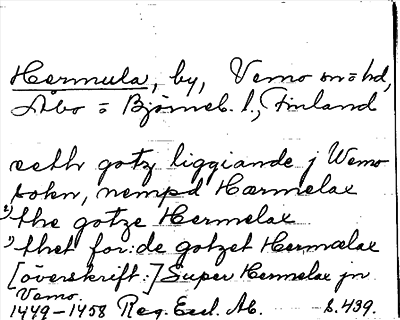 Hermula, by, Vemo sn o hd,
Åbo o Björneb. l., Finland
eeth gotz liggiande j Wemo
sokn, nempd Hærmelax
2) the gotze Hermelax
1) thet for:de gotzet Hermælax
[överskrift:] Super Hermelax jn
Vemo.
1449-1458 Reg. Eccl. Ab. S. 439.